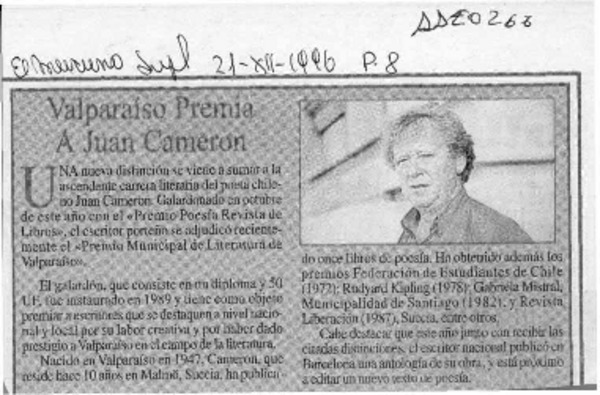 AAE0268
El Mercurio Supl 21-XII-1996 P. 8
Valparaíso Premia
A Juan Cameron
UNA nueva distinción se viene a sumar a la
ascendente carrera literaria del poeta chile-
no Juan Cameron. Galardonado en octubre
de este año con el «Premio Poesía Revista de
Libros», el escritor porteño se adjudicó reciente-
mente el «Premio Municipal de Literatura de
Valparaíso».
El galardón, que consiste en un diploma y 50
UF, fue instaurado en 1989 y tiene como objeto
premiar a escritores que se destaquen a nivel nacio-
nal y local por su labor creativa y por haber dado
prestigio a Valparaíso en el campo de la literatura.
Nacido en Valparaíso en 1947, Cameron, que
reside hace 10 años en Malmö, Suecia, ha publica-
do once libros de poesía. Ha obtenido además los
premios Federación de Estudiantes de Chile
(1972); Rudyard Kipling (1978); Gabriela Mistral,
Municipalidad de Santiago (1982), y Revista
Liberación (1987), Suecia, entre otros.
Cabe destacar que este año junto con recibir las
citadas distinciones, el escritor nacional publicó en
Barcelona una antología de su obra, y está próximo
a editar un nuevo texto de poesía.